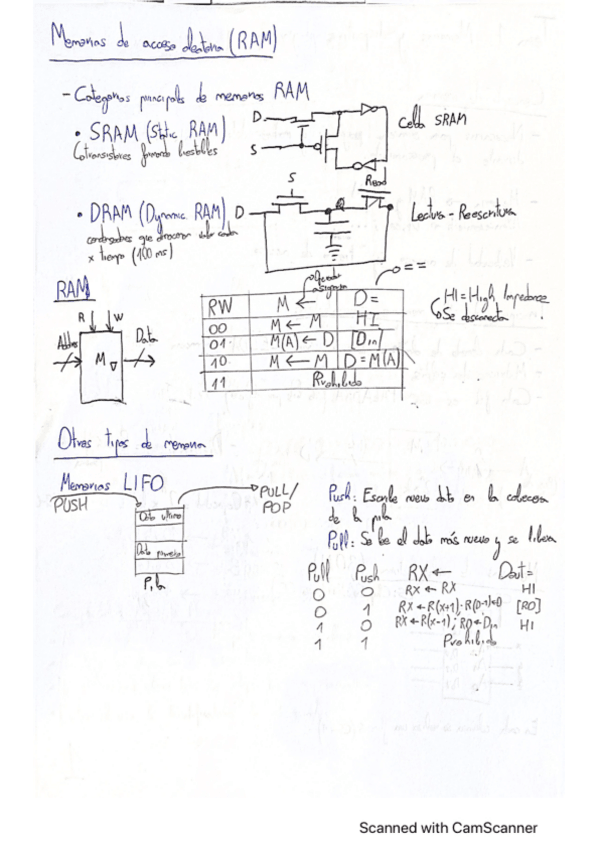 Memorias de acceso aleatoria (RAM)
- Categorias principales de memorias RAM
• SRAM (Static RAM)
6 transistores formando biestables
D
S
Celda SRAM
• DRAM (Dynamic RAM)
condensadores que almacenan valor
x tiempo (100 ms)
D
S
Read
Lectura - Reescritura
RAM
R W
Address
M
Data
Operador asignación
==
RW M ← D =
00 M ← M HI
01 M(A) ← D [Din]
10 M ← M D = M(A)
11 Prohibido
HI = High Impedance
Se desconecta
Otros tipos de memoria
Memorias LIFO
PUSH
PULL/
POP
Dato ultimo
Dato primero
Pila
Push: Escribe nuevo dato en la cabecera
de la pila
Pull: Se lee el dato más nuevo y se libera
Pull Push RX ← Dout =
0 0 RX ← RX HI
0 1 RX ← R(x+1); R(D-1)←0 [RO]
1 0 RX ← R(x-1); RO ← Din HI
1 1 Prohibido
Scanned with CamScanner